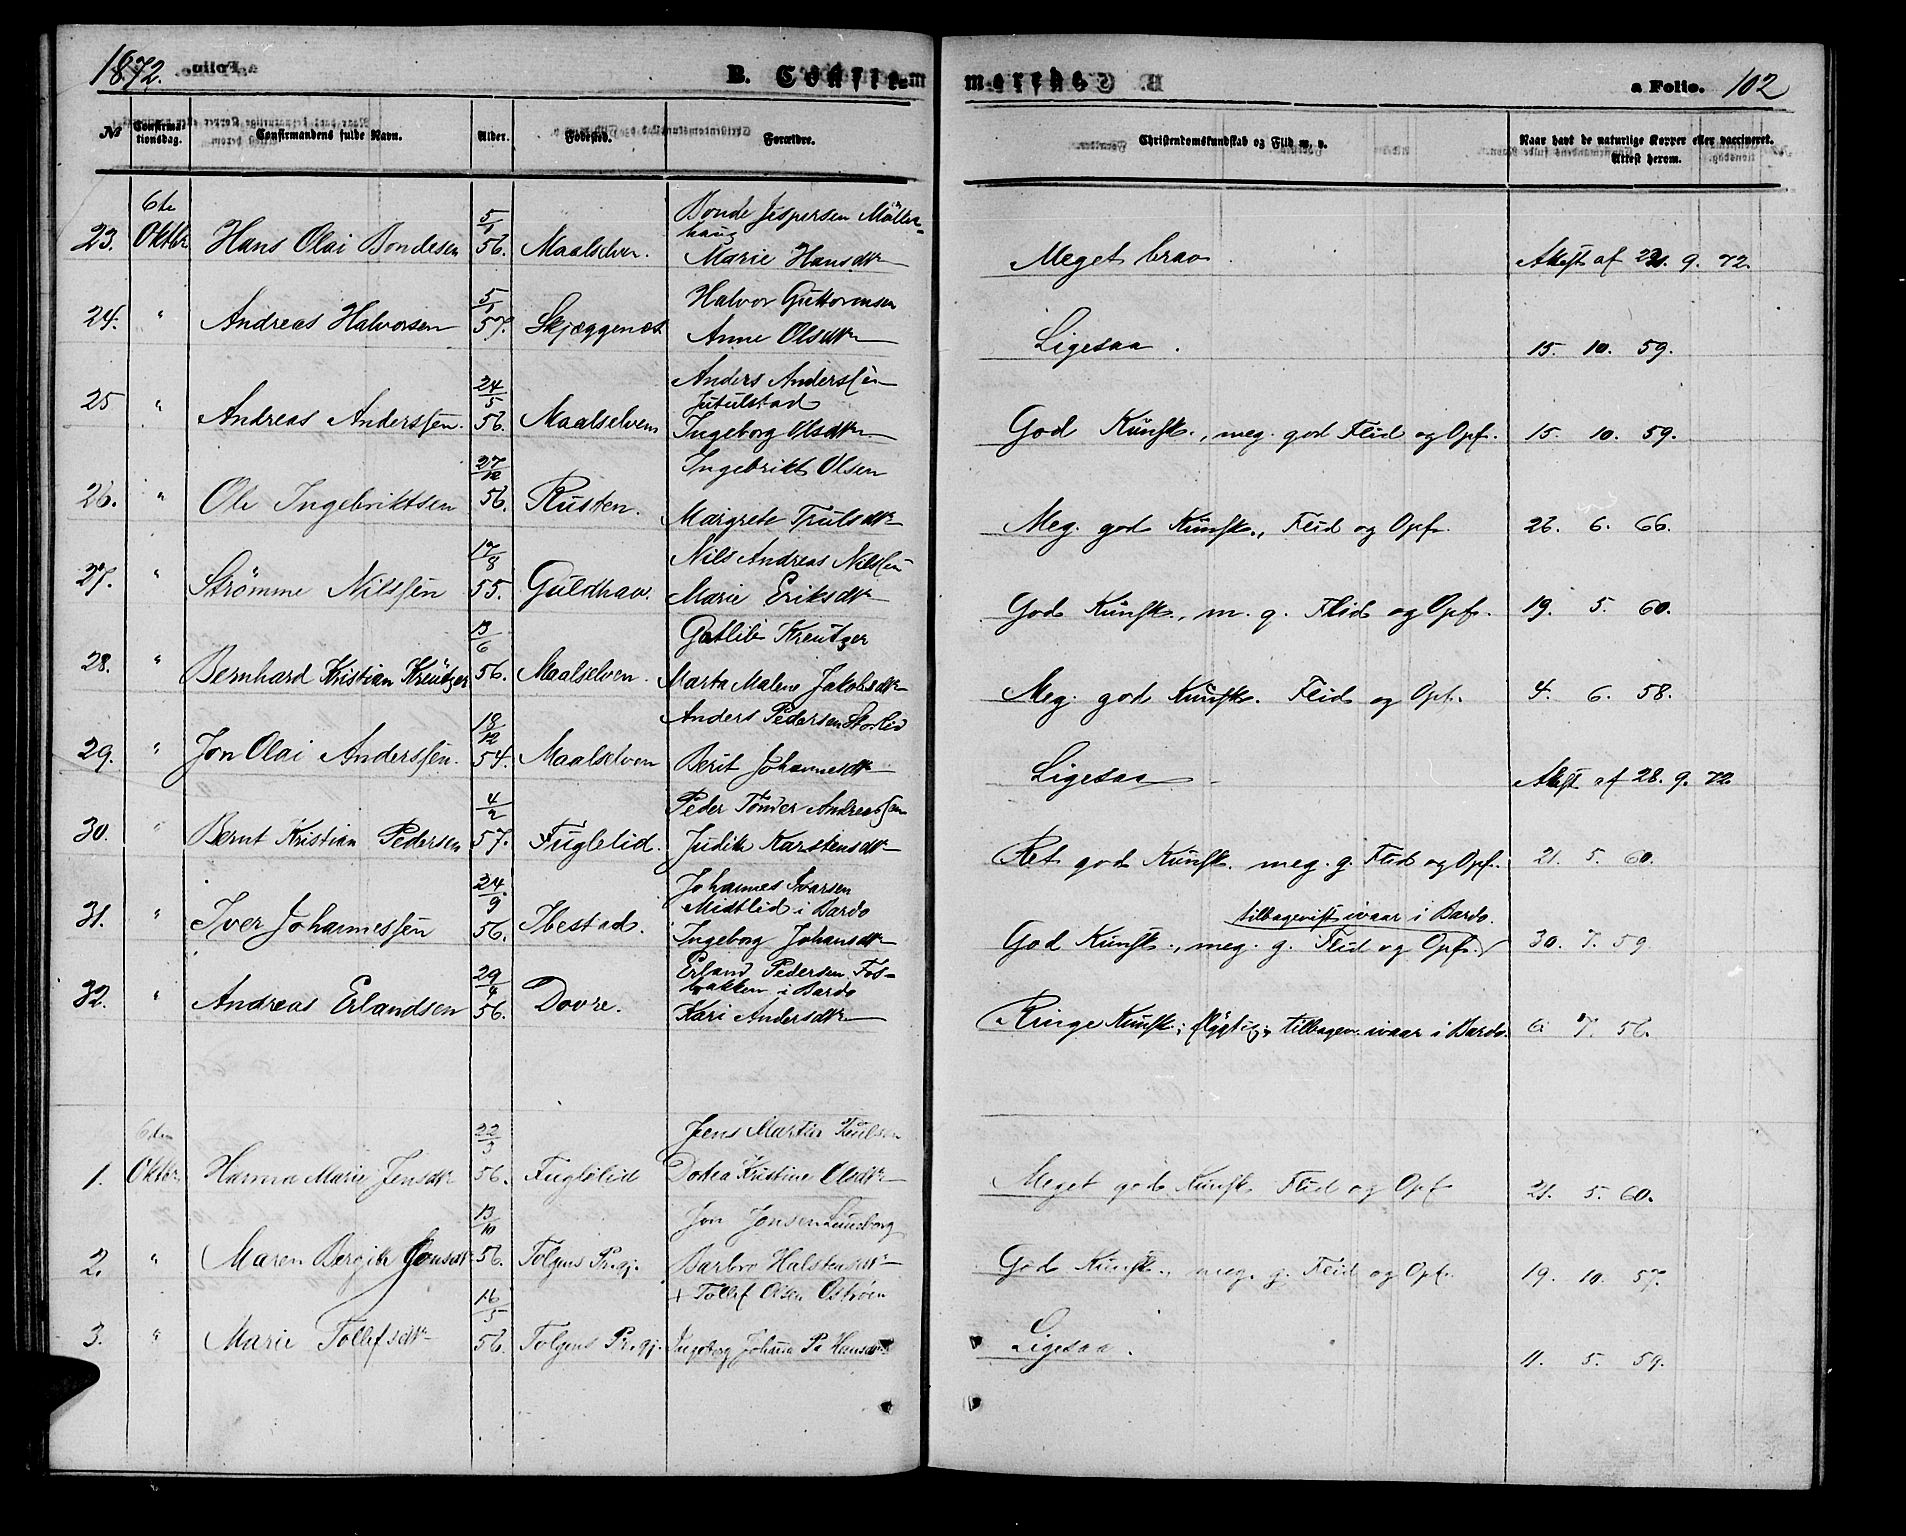 1872.
B. Confirm
merede.
a Folio. 102
No
Confirmationsdag.
Confirmandens fulde Navn.
Alder.
Fødested.
Forældre.
Christendomskundskab og Flid m. v.
Naar havt de naturlige Kopper eller vaccineret. Attest herom.
23. 6te Oktbr Hans Olai Bondesen 5/1 56. Maalselven. Bonde Jespersen Møllerhaug Marie Hansdtr Meget brav. Attest af 22. 9. 72.
24. " Andreas Halvorsen 5/1 57. Skjæggenæs Halvor Guttormsen Anne Olsdtr Ligesaa. 15. 10. 59.
25 " Andreas Anderssen. 24/5 56. Maalselven Anders Anderssen Jutulstad Ingeborg Olsdtr God Kundsk., meg. god Flid og Opf. 15. 10. 59.
26. " Ole Ingebriktsen 27/12 56. Rusten. Ingebrikt Olsen Margrete Trulsdtr Meg. god Kundsk., Flid og Opf. 26. 6. 66.
27. " Strømme Nilssen 17/8 55. Guldhav. Nils Andreas Nilssen Marie Eriksdtr God Kundsk., m. g. Flid og Opf. 19. 5. 60.
28. " Bernhard Kristian Kreutzer 13/6 56. Maalselven. Gotlib Kreutzer Marta Malene Jakobsdtr Meg. god Kundsk. Flid og Opf. 4. 6. 58.
29. " Jon Olai Anderssen. 18/12 54. Maalselven Anders Pedersen Storlid Berit Johannesdtr Ligesaa Attest af 28. 9. 72
30. " Bernt Kristian Pedersen 4/2 57. Fuglelid. Peder Tønder Andreassen Judith Karstensdtr Ret god Kundsk. meg. g. Flid og Opf. 21. 5. 60.
31. " Iver Johannessen 24/9 56. Ibestad. Johannes Ivarsen Midtlid i Bardo Ingeborg Johansdtr God Kundsk., meg. g. Flid og Opf. tilbagevist ivaar i Bardo. 30. 7. 59
32. " Andreas Erlandsen 29/4 56. Dovre. Erland Pedersen Fosbakken i Bardo Kari Andersdtr Ringe Kundsk.; flygtig; tilbagev. ivaar i Bardo. 6. 7. 56.
1. 6te Oktbr Hanna Marie Jensdtr 22/3 56. Fuglelid Jens Martin Dotea Kristine Olsdtr Meget god Kundsk Flid og Opf 21. 5. 60.
2. " Maren Bergite Jonsdtr 13/10 56. Tolgens Pr.gj. Jon Jonsen Barbro Halstensdtr God Kundsk., meg. g. Flid og Opf. 19. 10. 57.
3. " Marie Tollefsdtr 16/5 56. Tolgens Pr.gj. + Tollef Olsen Ostrøen Ingeborg Johanna Hansdtr Ligesaa. 11. 5. 59.